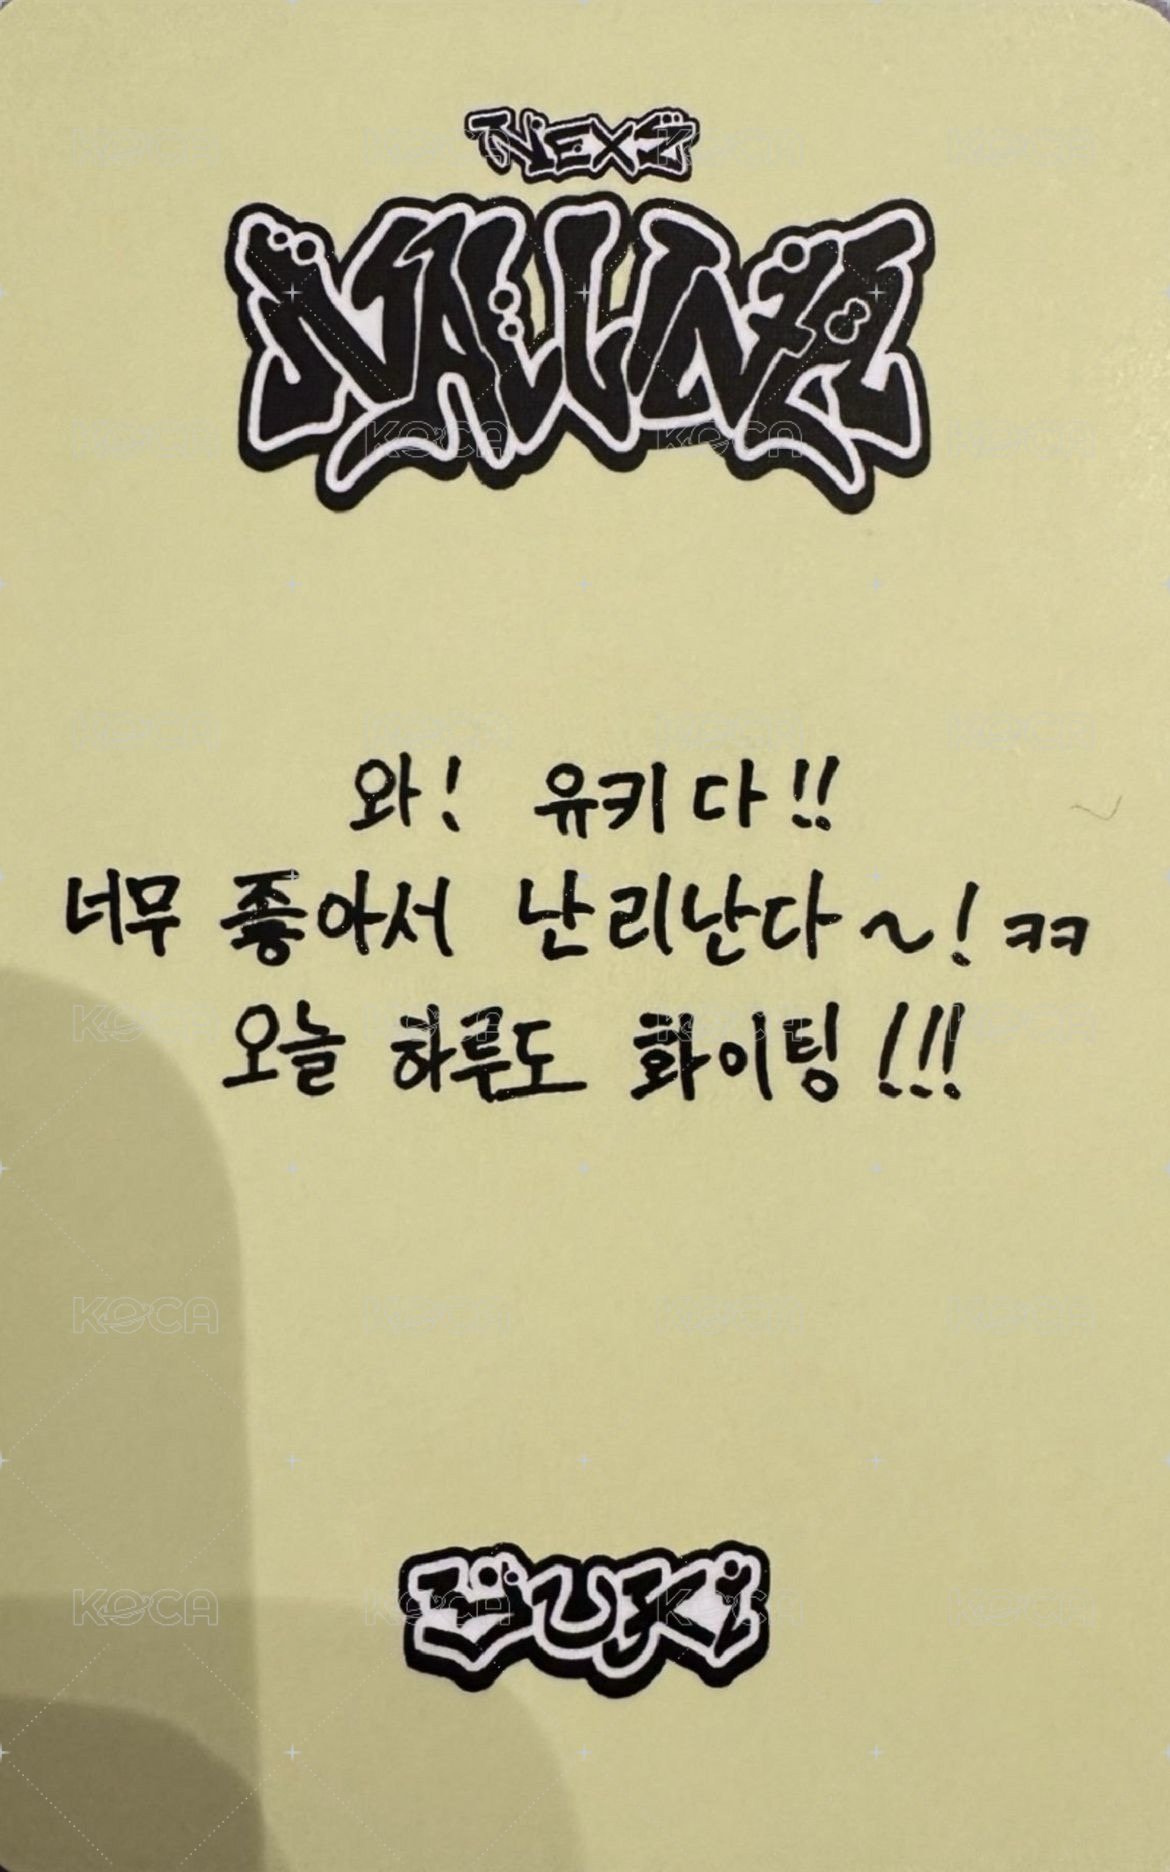 NEXZ
NALLINA
와! 유키다!!
너무 좋아서 난리난다~! ㅋㅋ
오늘 하루도 화이팅!!!
YUKI
KOCA